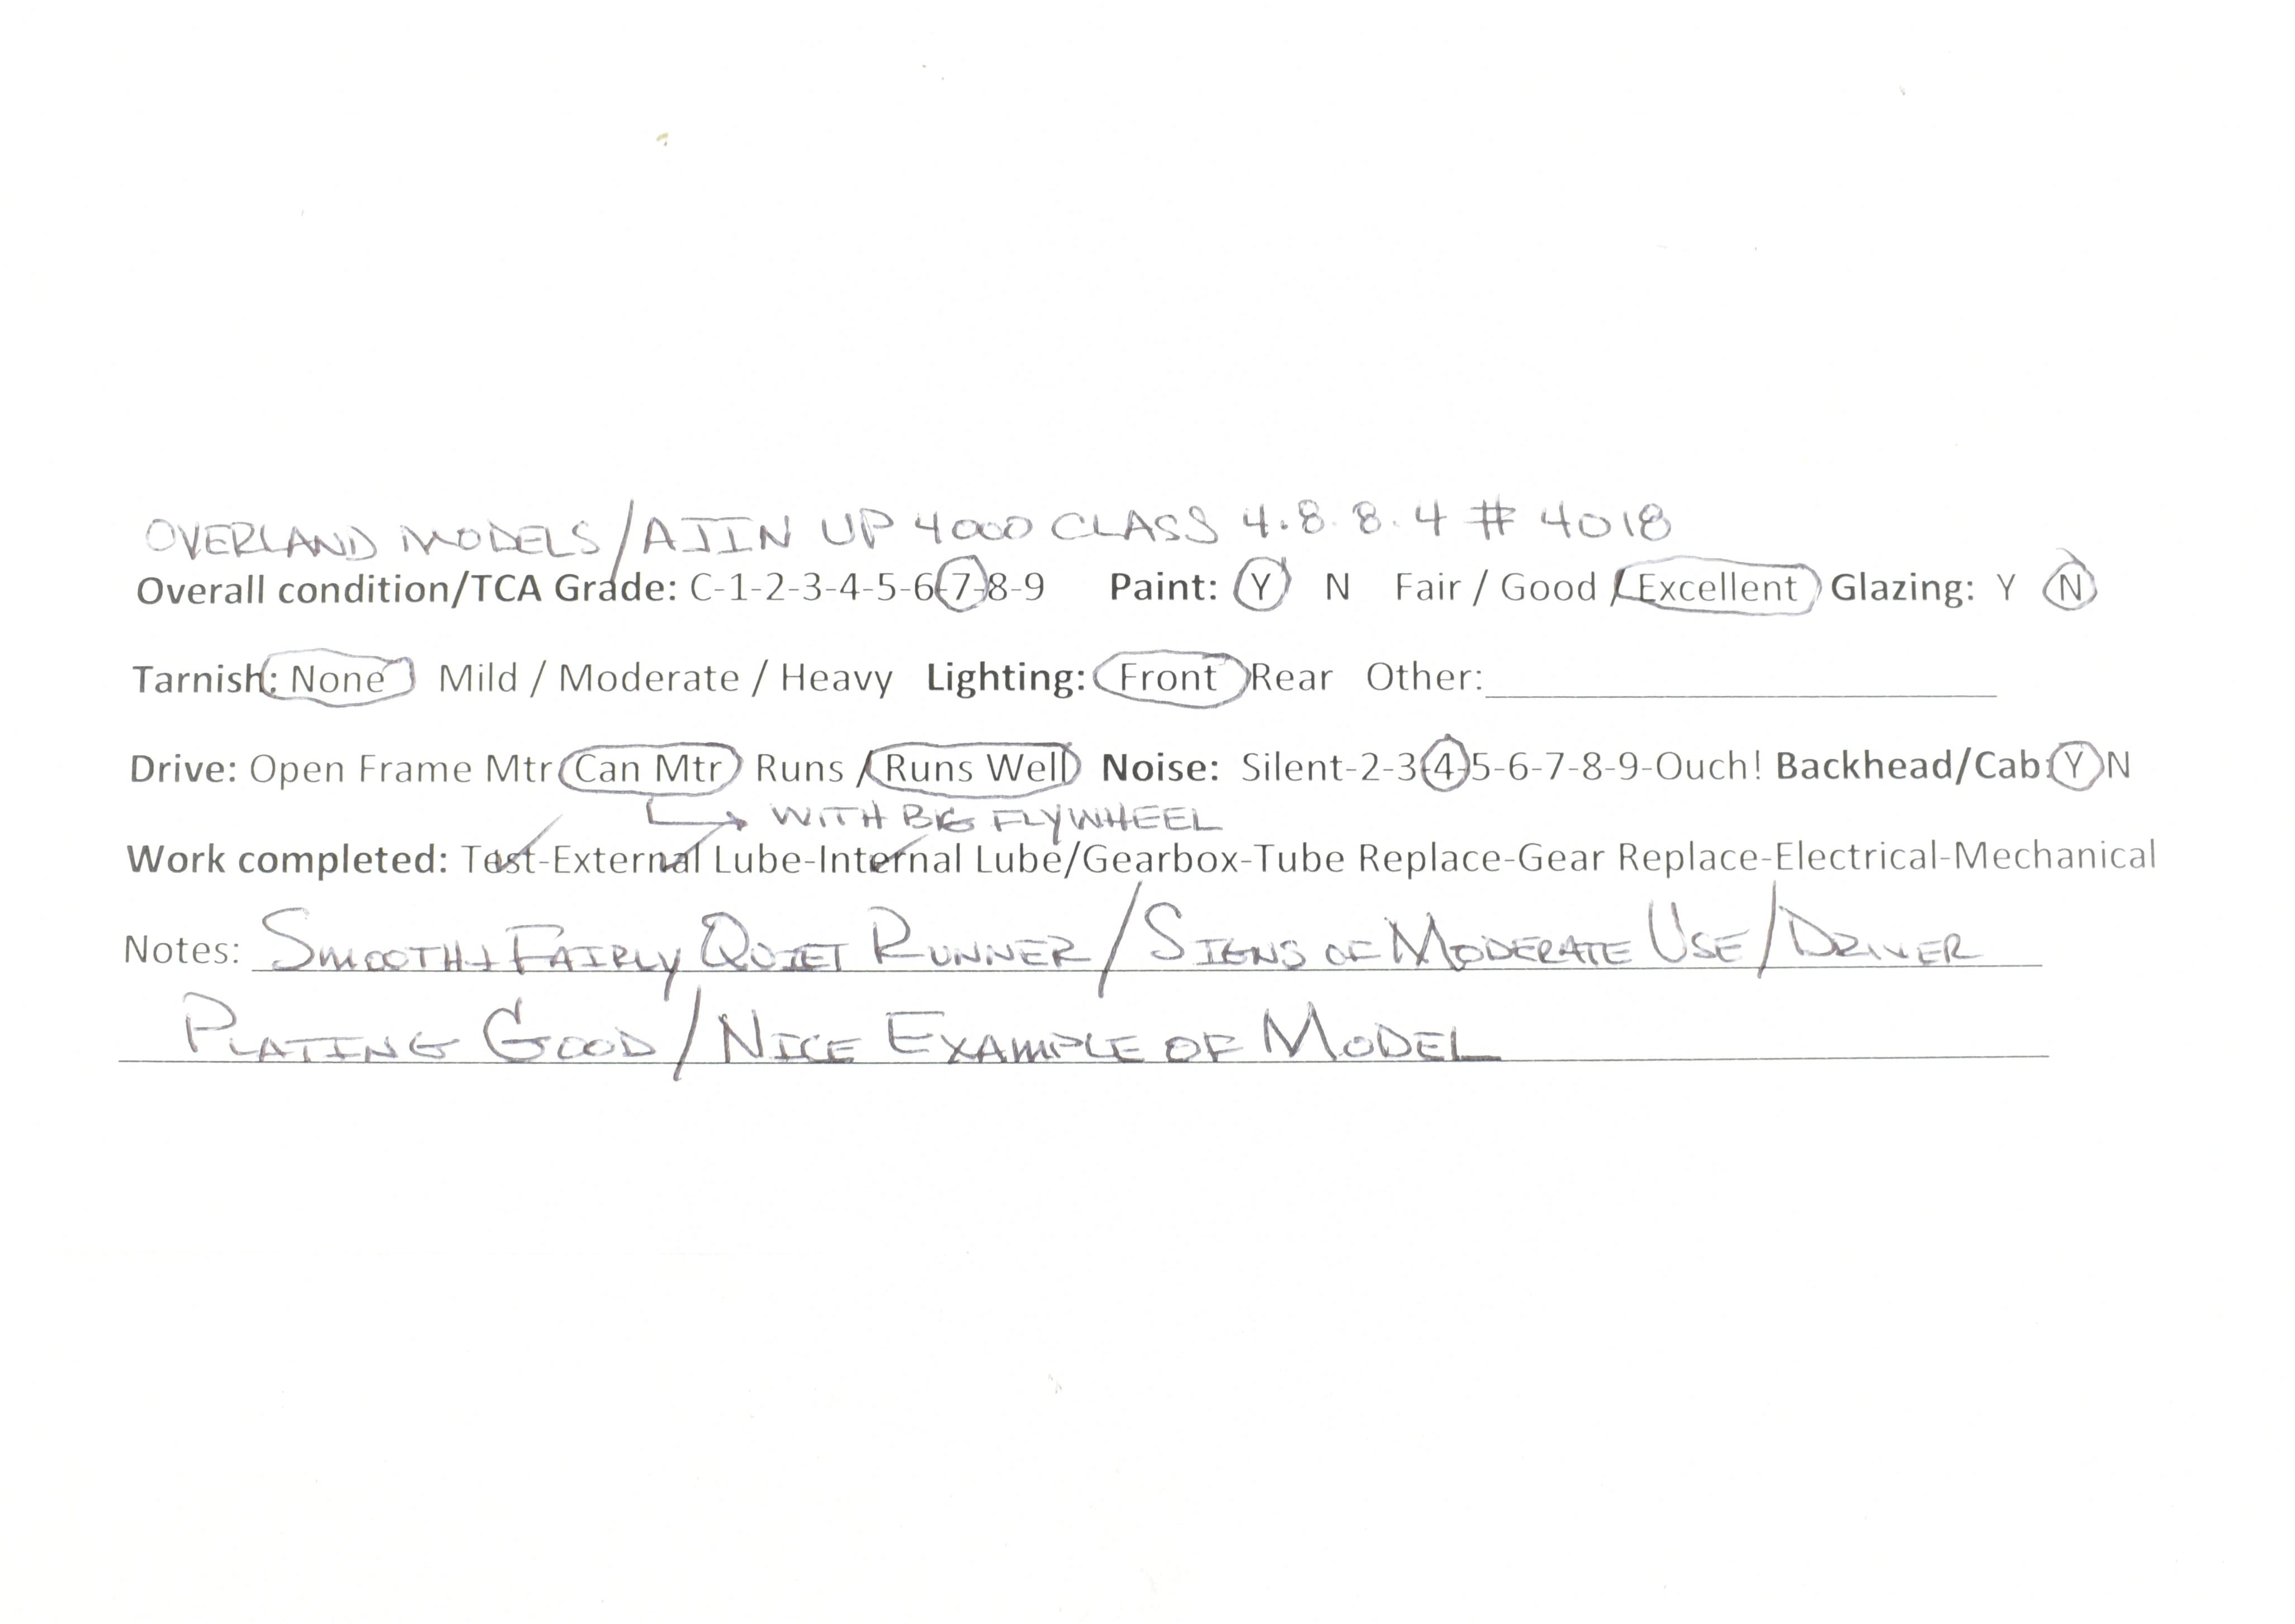 OVERLAND MODELS/AJIN UP 4000 CLASS 4.8.8.4 # 4018
Overall condition/TCA Grade: C-1-2-3-4-5-6-7-8-9 Paint: Y N Fair / Good / Excellent Glazing: Y N
Tarnish: None Mild / Moderate / Heavy Lighting: Front Rear Other:
Drive: Open Frame Mtr Can Mtr Runs / Runs Well Noise: Silent-2-3-4-5-6-7-8-9-Ouch! Backhead/Cab: Y N
WITH BIG FLYWHEEL
Work completed: Test-External Lube-Internal Lube/Gearbox-Tube Replace-Gear Replace-Electrical-Mechanical
Notes: SMOOTH + FAIRLY QUIET RUNNER/SIGNS OF MODERATE USE/DRIVER
PLATING GOOD/NICE EXAMPLE OF MODEL